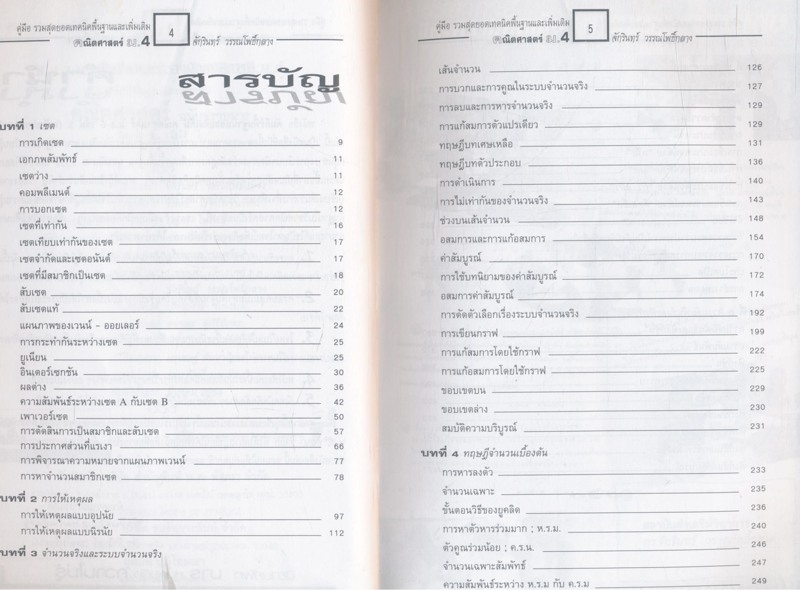 คู่มือ รวมสุดยอดเทคนิคพื้นฐานและเพิ่มเติม
คณิตศาสตร์ ม.4
4
สารบัญ
บทที่ 1 เซต
การเกิดเซต 9
เอกภพสัมพัทธ์ 11
เซตว่าง 11
คอมพลีเมนต์ 12
การบอกเซต 12
เซตที่เท่ากัน 16
เซตเทียบเท่ากันของเซต 17
เซตจำกัดและเซตอนันต์ 17
เซตที่มีสมาชิกเป็นเซต 18
สับเซต 20
สับเซตแท้ 22
แผนภาพของเวนน์ - ออยเลอร์ 24
การกระทำกันระหว่างเซต 25
ยูเนียน 25
อินเตอร์เซกชัน 30
ผลต่าง 36
ความสัมพันธ์ระหว่างเซต A กับเซต B 42
เพาเวอร์เซต 50
การตัดสินการเป็นสมาชิกและสับเซต 57
การประกาศส่วนที่แรเงา 66
การพิจารณาความหมายจากแผนภาพเวนน์ 77
การหาจำนวนสมาชิกเซต 78
บทที่ 2 การให้เหตุผล
การให้เหตุผลแบบอุปนัย 97
การให้เหตุผลแบบนิรนัย 112
บทที่ 3 จำนวนจริงและระบบจำนวนจริง
คู่มือ รวมสุดยอดเทคนิคพื้นฐานและเพิ่มเติม
คณิตศาสตร์ ม.4
5
ศักรินทร์ วรรณโพธิ์กลาง
เส้นจำนวน 126
การบวกและการคูณในระบบจำนวนจริง 127
การลบและการหารจำนวนจริง 129
การแก้สมการตัวแปรเดียว 129
ทฤษฎีบทเศษเหลือ 131
ทฤษฎีบทตัวประกอบ 136
การดำเนินการ 140
การไม่เท่ากันของจำนวนจริง 143
ช่วงบนเส้นจำนวน 148
อสมการและการแก้อสมการ 154
ค่าสัมบูรณ์ 170
การใช้บทนิยามของค่าสัมบูรณ์ 172
อสมการค่าสัมบูรณ์ 174
การตัดตัวเลือกเรื่องระบบจำนวนจริง 192
การเขียนกราฟ 199
การแก้สมการโดยใช้กราฟ 222
การแก้อสมการโดยใช้กราฟ 225
ขอบเขตบน 229
ขอบเขตล่าง 230
สมบัติความบริบูรณ์ 231
บทที่ 4 ทฤษฎีจำนวนเบื้องต้น
การหารลงตัว 233
จำนวนเฉพาะ 235
ขั้นตอนวิธีของยูคลิด 236
การหาตัวหารร่วมมาก ; ห.ร.ม. 240
ตัวคูณร่วมน้อย ; ค.ร.น. 246
จำนวนเฉพาะสัมพัทธ์ 247
ความสัมพันธ์ระหว่าง ห.ร.ม กับ ค.ร.ม 249